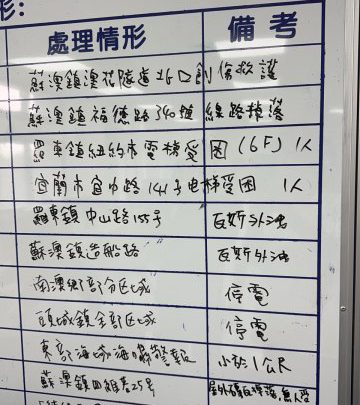 形:
處理情形 備考
蘇澳鎮澳花隧道 口 救護
蘇澳鎮福德路340號 線路掉落
羅東鎮紐約市電梯受困(6F)1人
宜蘭市宜中路141号电梯受困 1人
羅東鎮中山路155号 瓦斯外洩
蘇澳鎮造船路 瓦斯外洩
南澳鄉部分区域 停電
頭城鎮全部区域 停電
東部海域海嘯警報 小於1公尺
蘇澳鎮四維巷25号 掉落,無人受